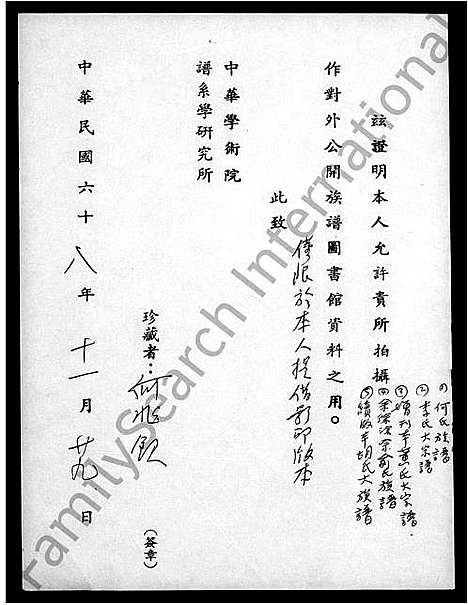 玆證明本人允許貴所拍攝
①何氏族譜
②李氏大宗譜
③增刊本黃氏大宗譜
④余徐涂佘俞氏族譜
⑤續版本胡氏大族譜
作對外公開族譜圖書館資料之用。
僅限於本人提借影印版本
此致
中華學術院
譜系學硏究所
珍藏者：何兆欽
(簽章)
中華民國六十八年十一月廿九日
FamilySearch International